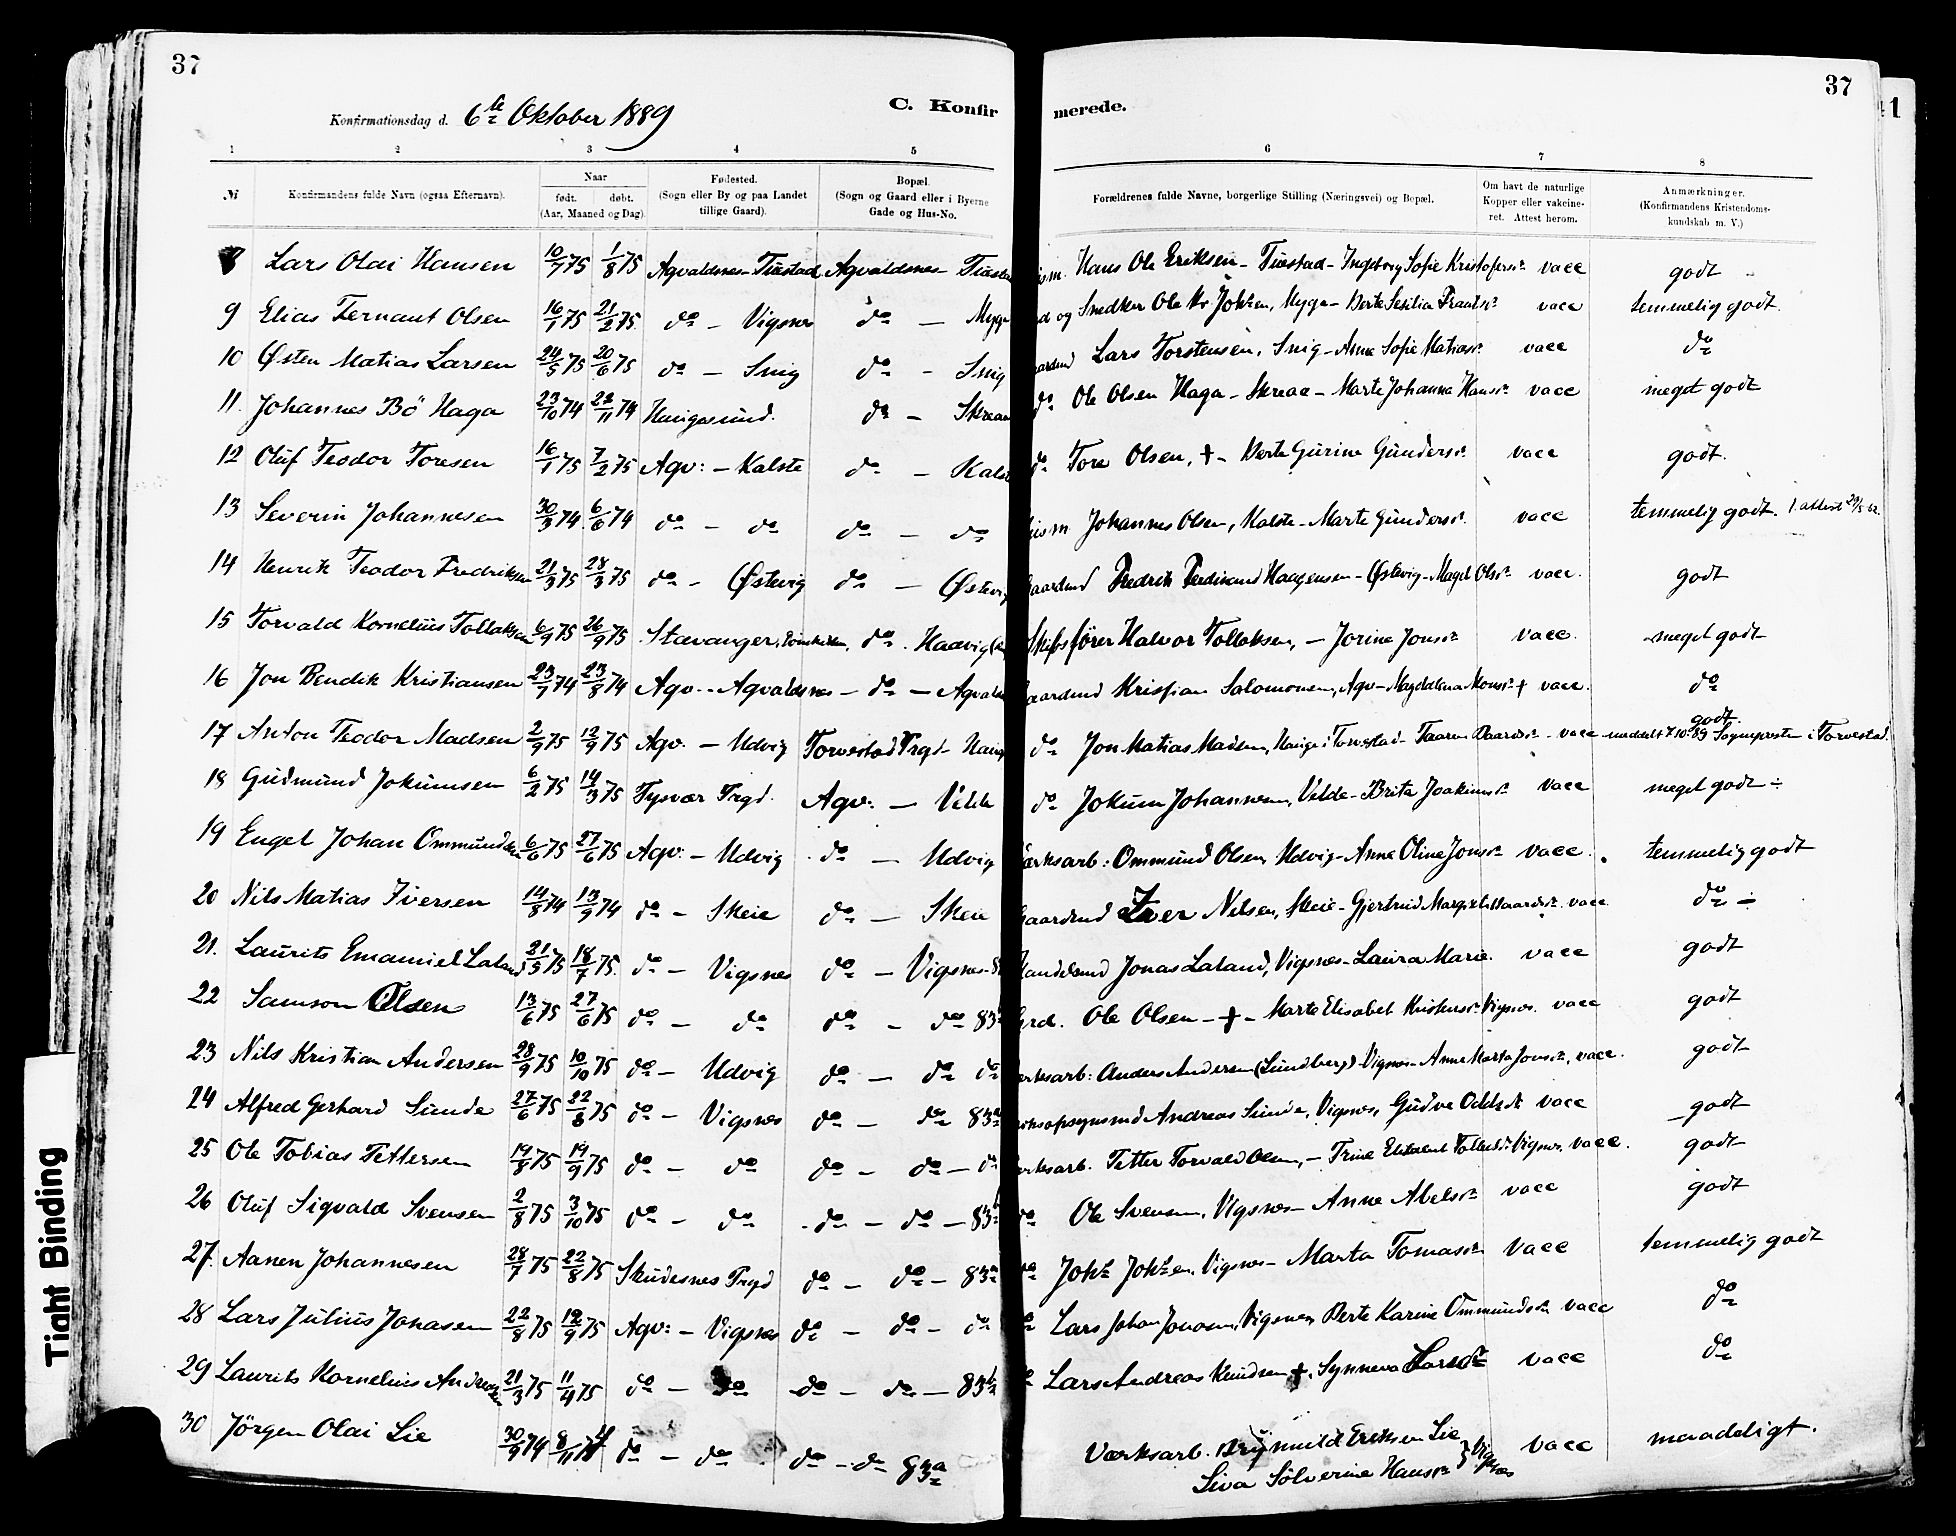 37
37
41
Konfirmationsdag d. 6te Oktober 1889
C. Konfir
merede.
1 2 3 4 5 6 7 8
№ Konfirmandens fulde Navn (ogsaa Efternavn). Naar født. døbt. (Aar, Maaned og Dag). Fødested. (Sogn eller By og paa Landet tillige Gaard). Bopæl. (Sogn og Gaard eller i Byerne Gade og Hus-No. Forældrenes fulde Navne, borgerlige Stilling (Næringsvei) og Bopæl. Om havt de naturlige Kopper eller vakcineret. Attest herom. Anmærkninger. (Konfirmandens Kristendomskundskab m. V.)
8 Lars Olai Hansen 10/7 75 1/8 75 Agvaldsnes - Tuastad Agvaldsnes - Hans Ole Eriksen - Tuastad - Ingeborg Sofie vacc godt
9 Elias Fernant Olsen 16/1 75 21/2 75 do - Vigsnes do - Myge og Snedker Ole Myge - Berte Sesilia vacc temmelig godt.
10 Østen Matias Larsen 24/5 75 20/6 75 do - Snig do - Snig Lars Torstensen, Snig - Anne Sofie Matiasdr vacc do
11. Johannes Bö Haga 23/10 74 22/11 74 Haugesund. do - Skreaa do Ole Olsen Haga - Skreaa - Marte Johanna Hansdr vacc meget godt
12 Oluf Teodor Toresen 16/1 75 7/2 75 Agv: - Kalste do - do Tore Olsen, † - Berte Gurine Gundersdr vacc godt.
13 Severin Johannesen 30/3 74 6/6 74 do - do do - do Johannes Olsen, Kalste - Marte Gundersdr vacc temmelig godt.
14 Henrik Teodor Fredriksen 21/3 75 28/3 75 do - Østevig do - Østevig Fredrik Ferdinand Haagensen - Østevig - vacc. godt
15 Torvald Kornelius Tollaksen 6/9 75 26/9 75 Stavanger, do. Skibsfører Halvor Tollaksen, - Jorine Jonsdr vacc. meget godt
16 Jon Bendik Kristiansen 23/7 74 23/8 74 Agv. - Agvaldsnes - do - Kristian Salomonsen, Agv - Magdalena † vacc. do
17 Anton Teodor Madsen 2/9 75 12/9 75 Agv. - Udvig Torvestad Prgd - do Jon Matias Madsen, Hauge i Torvestad - vacc godt. Sognepresten i Torvestad.
18 Gudmund Jokumsen 6/2 75 14/3 75 Tysvær Prgd. Agv: - Velde do Jokum Johannesen, Velde - Brita vacc meget godt
19 Engel Johan Ommundsen 6/6 75 27/6 75 Agv: - Udvig do - Udvig Ommund Olsen, Udvig - Anne Oline Jonsdr vacc. temmelig godt
20 Nils Matias Iversen 14/8 74 13/9 74 do - Skeie do - Skeie Iver Nilsen, Skeie - Gjertrud vacc do
21. Laurits Emanuel Laland 21/5 75 18/7 75. do - Vigsnes do - Vigsnes Jonas Laland, Vigsnes - Laura Marie. vacc godt
22 Samson Olsen 13/6 75 27/6 75 do - do do - do Ole Olsen - † - Marte Elisabet Vigsnes. vacc godt
23 Nils Kristian Andersen 28/9 75 10/10 75 do - Udvig do - do do Anders Andersen (Lundberg) - Vigsnes - Anne Marta Jonsdr, vacc. godt
24 Alfred Gerhard Sunde 27/6 75 22/8 75 do - Vigsnes do - do 83a Andreas Sunde, Vigsnes, Gudve vacc godt
25 Ole Tobias Tettersen 19/8 75 19/9 75 do - do do - do - Tetter Torvald Olsen, - Trine Vigsnes. vacc. godt
26 Oluf Sigvald Svensen 2/8 75 3/10 75 do - do do - do - 83b do Ole Svensen, Vigsnes - Anne Abelsdr vacc godt
27. Aanen Johannesen 28/7 75 22/8 75 Skudesnes Prgd do - do - 83a do Vigsnes - Marta Tomasdr vacc temmelig godt
28 Lars Julius Jonasen 22/8 75 19/9 75 Agv: - Vigsnes do - do - do Lars Johan Jonasen, Vigsnes, Berte Karine Ommundsdr vacc do
29 Laurits Kornelius 21/3 75 11/4 75 do - do do - do - 83b Lars Andreas Knudsen †, Synneva Larsdr vacc do
30 Jörgen Olai Lie 30/9 74 8/11 74 do - do do - do 83a Værksarb. Eriksen Lie vacc maadeligt.
Siva Sölverine Hansdr } Vigsnes
Tight Binding